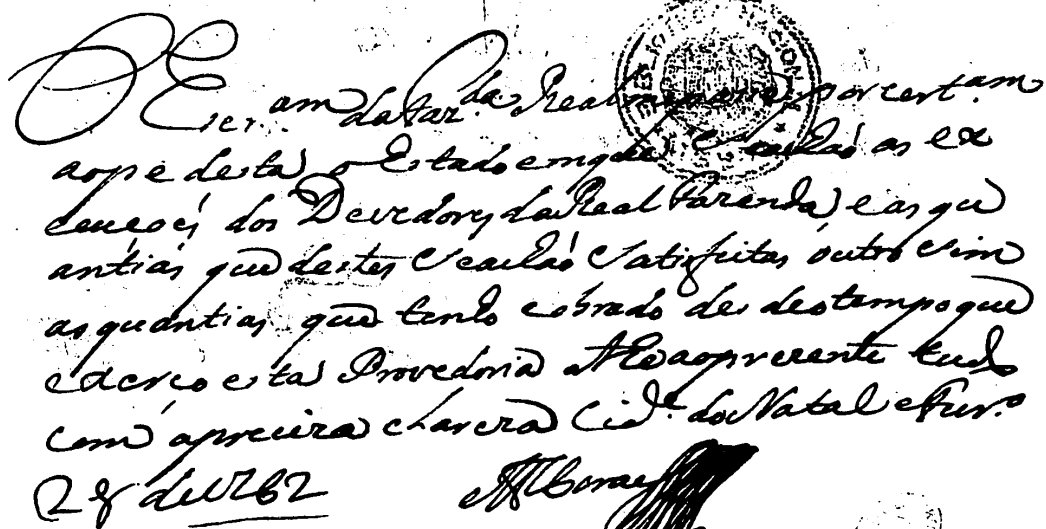 O Escr.am da Faz.da Real me paçe por cert.am
ao pe desta o Estado em que se achaó as ex
ecucoés dos Devedores da Real Fazenda e as qu
antias que destes se achaó satisfeitas outro sim
as quantias que tenho cobrado des deotempo que
exerço esta Provedoria athe ao prezente tudo
com a preciza clareza Cid.e do Natal e Fevr.o
28 de 1762